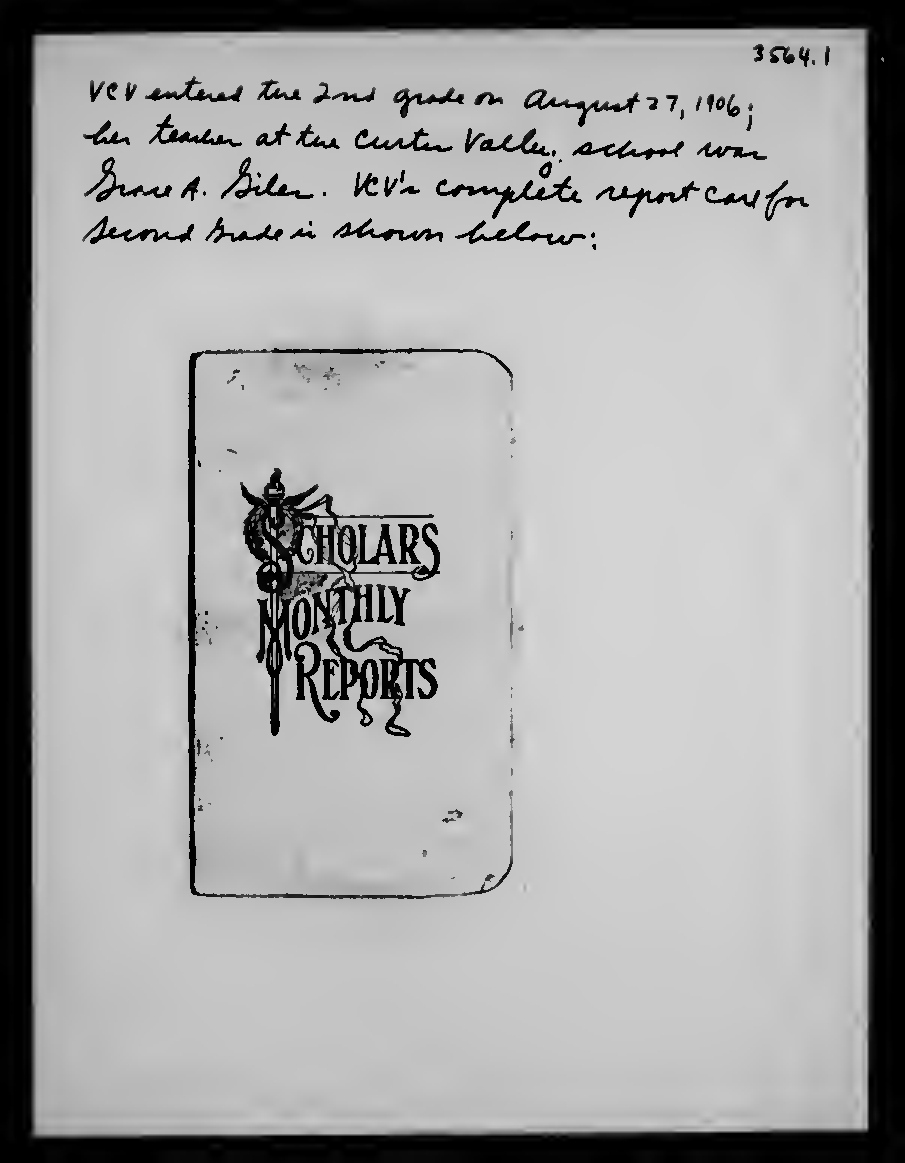 3564.1
VCV entered the 2nd grade on August 27, 1906;
her teacher at the Custer Valley school was
Grace A. Giles. VCV's complete report card for
Second Grade is shown below:
SCHOLARS
MONTHLY
REPORTS